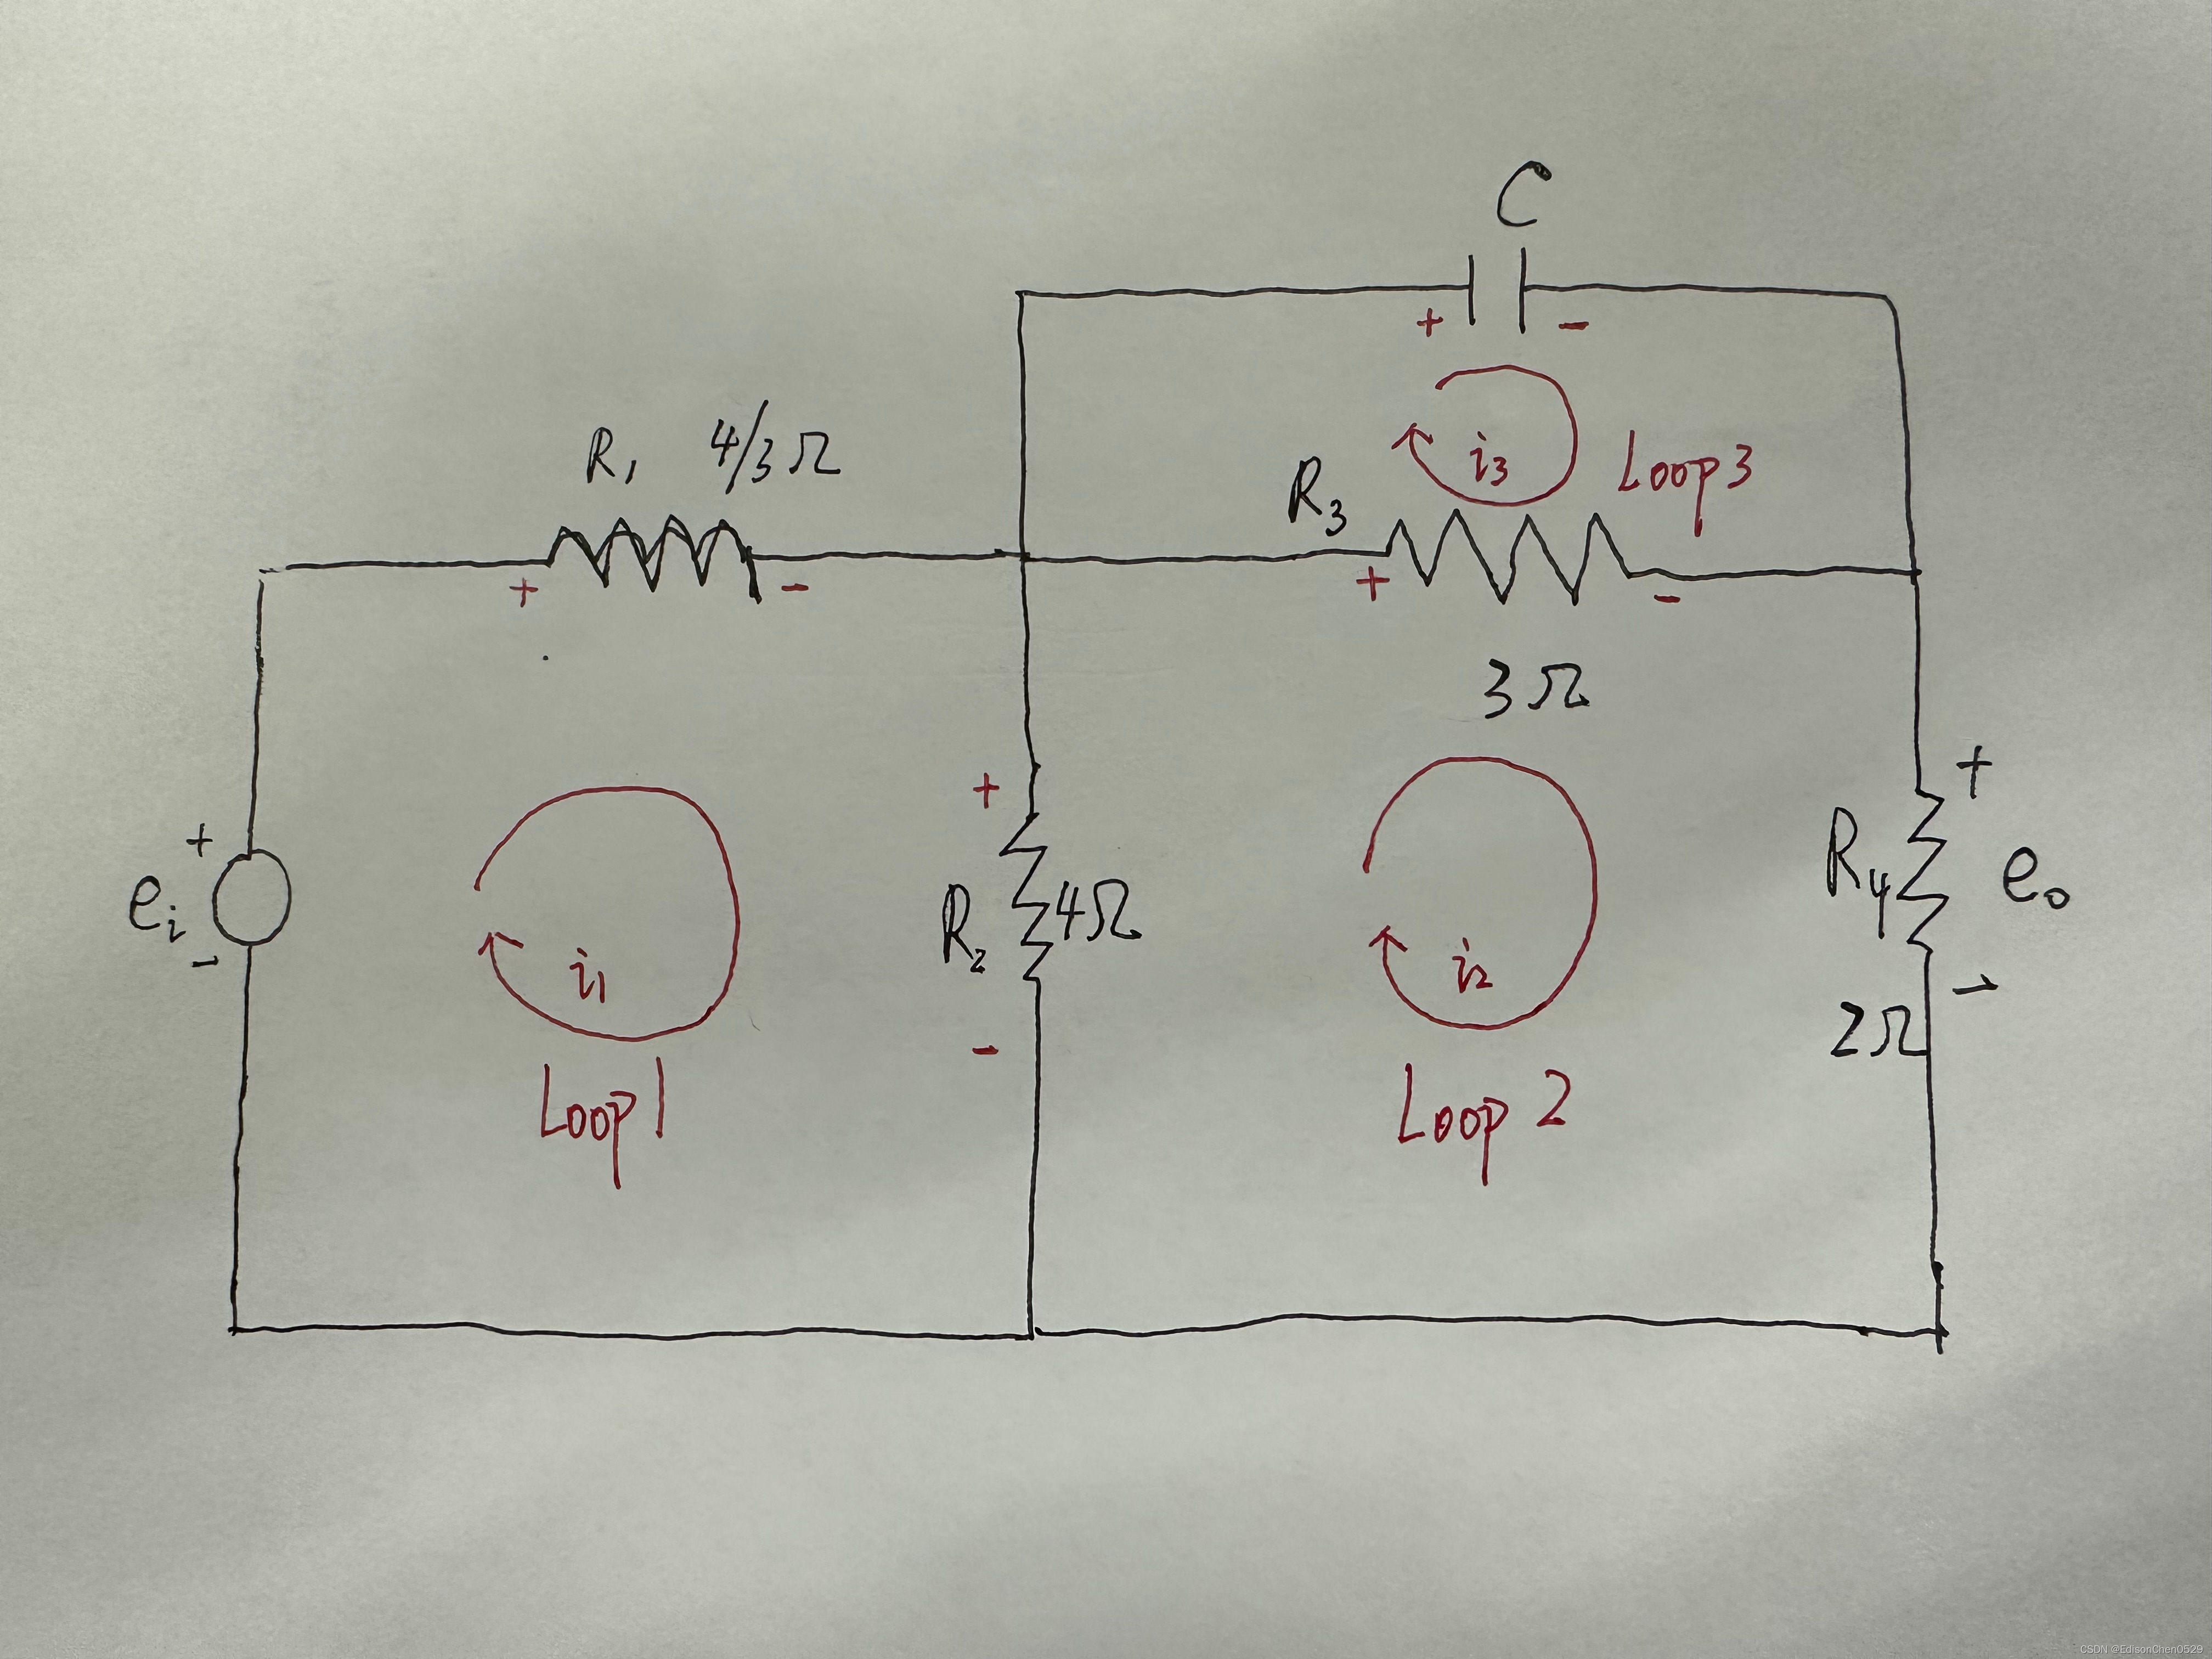 C
+ -
i3
Loop3
R1 4/3Ω
R3
+ -
+ -
3Ω
+
ei
-
+
R2 4Ω
-
+
R4 eo
-
2Ω
i1
Loop1
i2
Loop 2
CSDN @EdisonChen0529